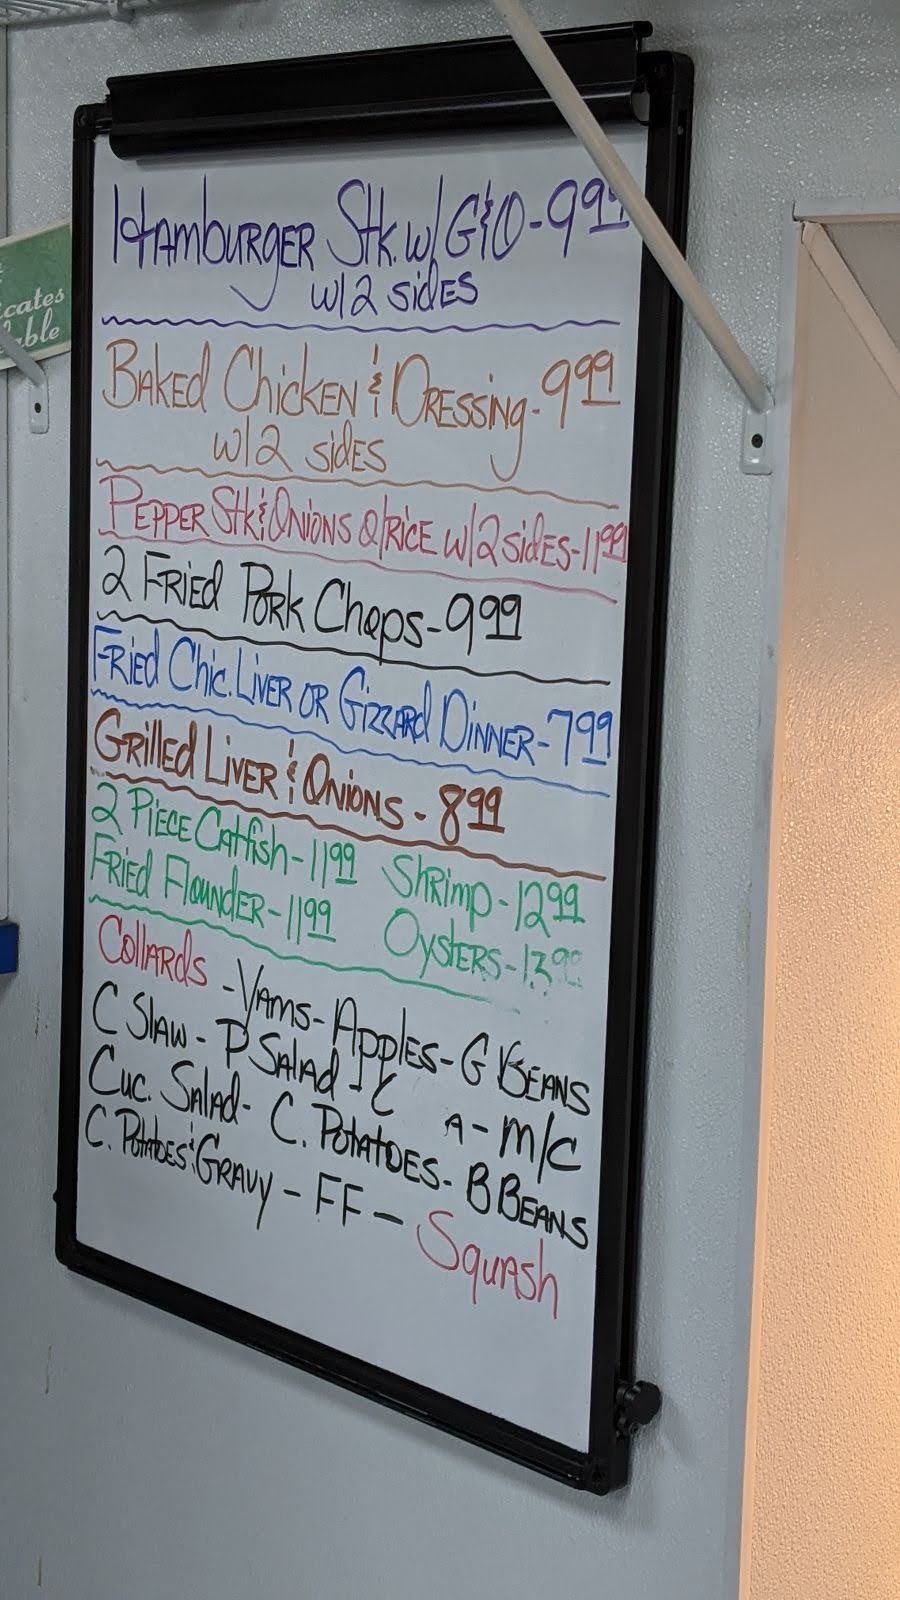 cates
able
Hamburger Stk. w/ G&O - 9.99
w/2 sides
Baked Chicken & Dressing - 9.99
w/2 sides
Pepper Stk & Onions O/Rice w/2 sides - 11.99
2 Fried Pork Chops - 9.99
Fried Chic. Liver or Gizzard Dinner - 7.99
Grilled Liver & Onions - 8.99
2 Piece Catfish - 11.99 Shrimp - 12.99
Fried Flounder - 11.99 Oysters - 13.99
Collards - Yams - Apples - G Beans
C Slaw - P Salad - C A - M/C
Cuc. Salad - C. Potatoes - B Beans
C. Potatoes & Gravy - FF - Squash